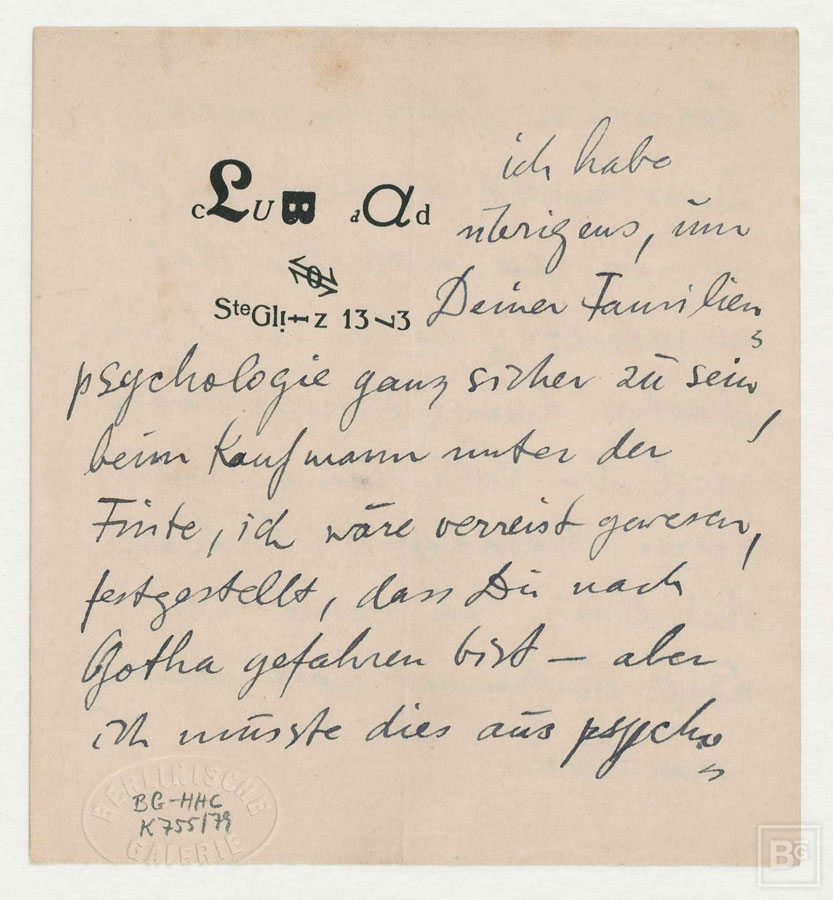 cLUB dAd
SteGl!tz 13 73
ich habe
übrigens, um
Deiner Familien=
psychologie ganz sicher zu sein,
beim Kaufmann unter der
Finte, ich wäre verreist gewesen,
festgestellt, dass Du nach
Gotha gefahren bist — aber
ich musste dies aus psycho=
BERLINISCHE
BG-HHC
K755/79
GALERIE
BG